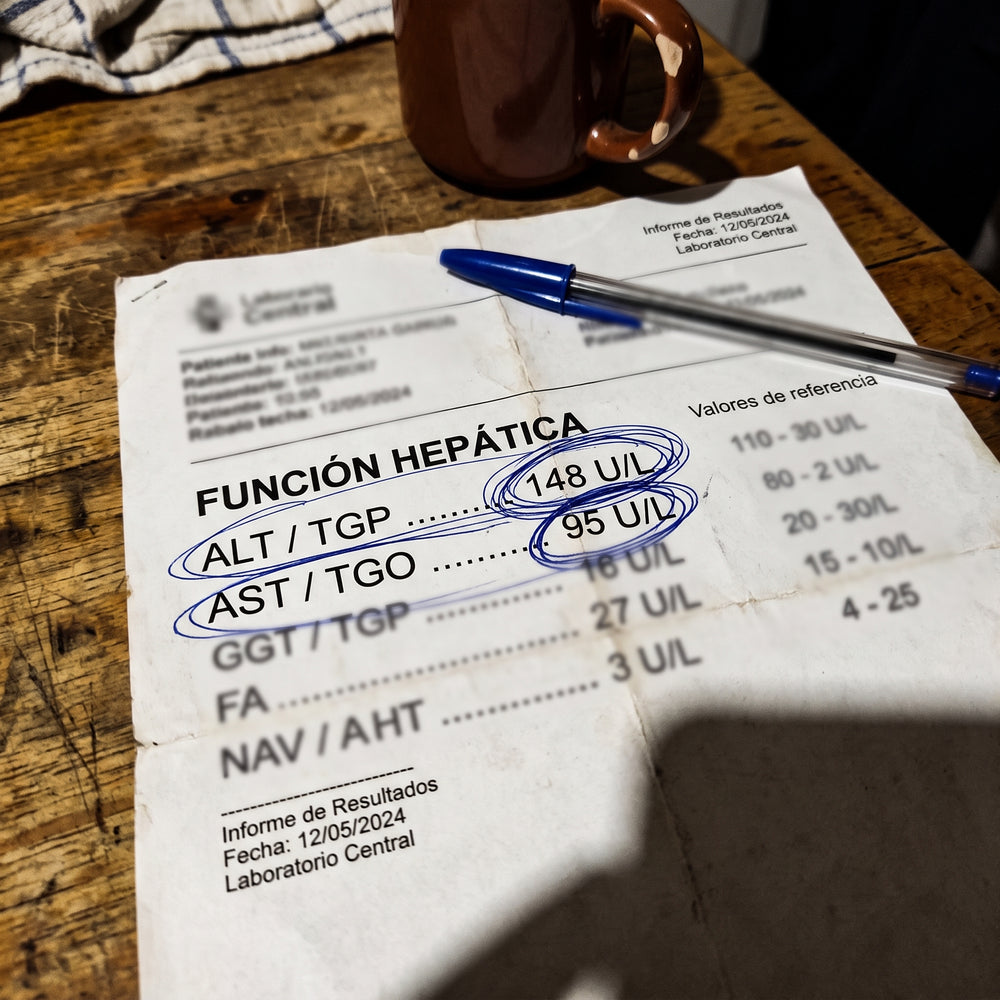 Informe de Resultados
Fecha: 12/05/2024
Laboratorio Central
Central
12/05/2024
Valores de referencia
FUNCIÓN HEPÁTICA
ALT / TGP .......... 148 U/L
110 - 30 U/L
AST / TGO .......... 95 U/L
80 - 2 U/L
GGT / TGP .......... 16 U/L
20 - 30/L
FA .......... 27 U/L
15 - 10/L
NAV / AHT .......... 3 U/L
4 - 25
Informe de Resultados
Fecha: 12/05/2024
Laboratorio Central